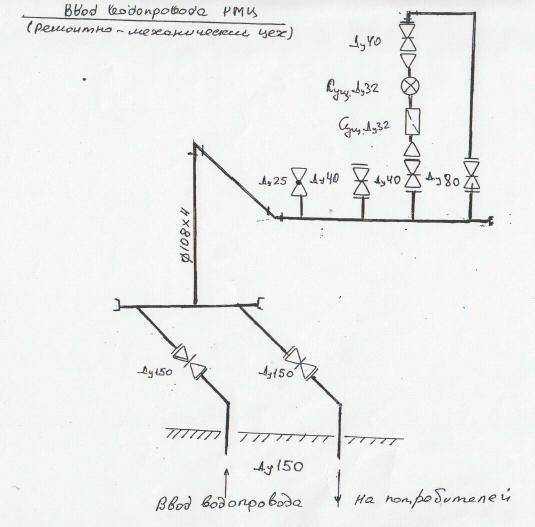 Ввод водопровода РМЦ
(ремонтно-механический цех)
Ду40
Сущ. Ду32
Сущ. Ду32
Ду25
Ду40
Ду40
Ду80
Ø108х4
Ду150
Ду150
Ду150
Ввод водопровода
на потребителей